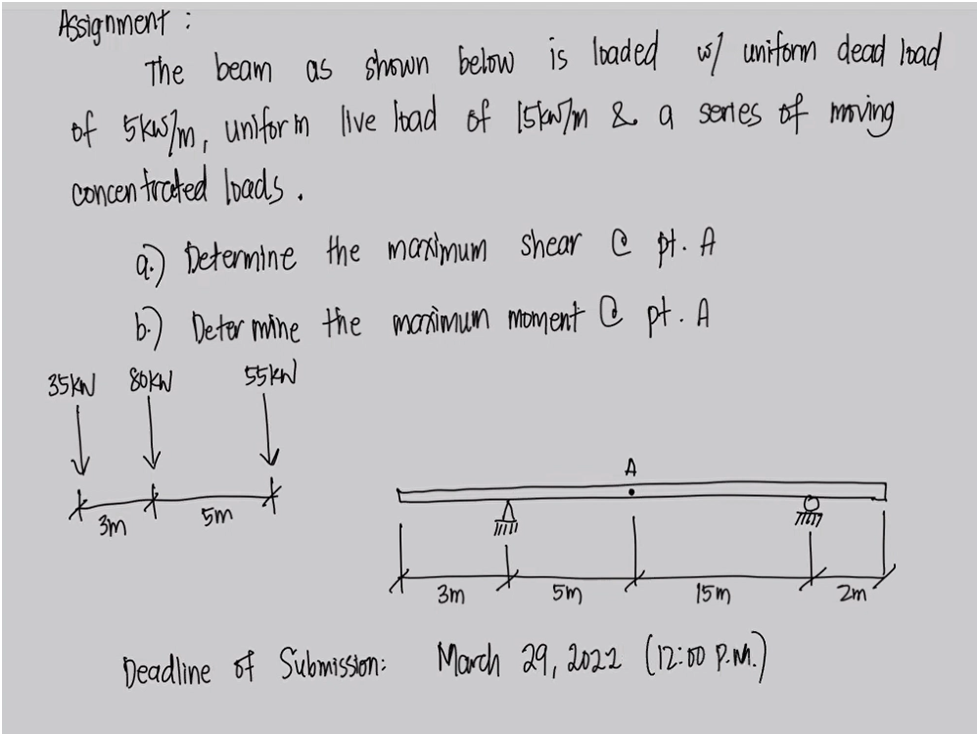 Assignment :
The beam as shown below is loaded w/ uniform dead load
of 5kN/m, uniform live load of 15kN/m & a series of moving
concentrated loads.
a.) Determine the maximum shear @ pt. A
b.) Determine the maximum moment @ pt. A
35kN 80kN 55kN
3m 5m
A
3m 5m 15m 2m
Deadline of Submission: March 29, 2022 (12:00 P.M.)